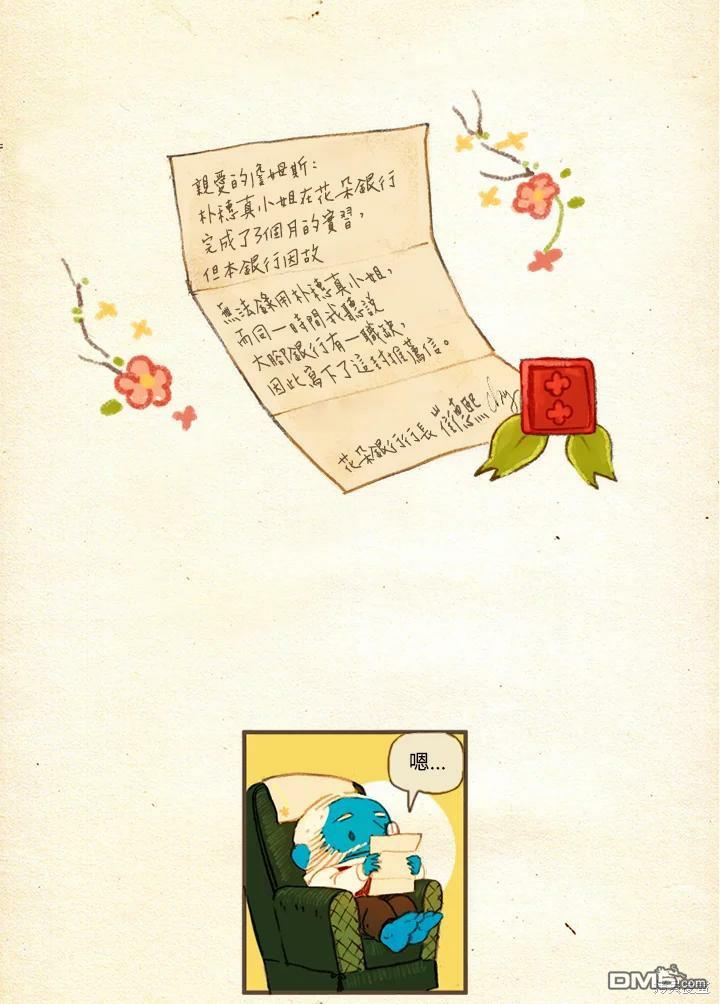 親愛的詹姆斯：
朴穗真小姐在花朵銀行
完成了3個月的實習，
但本銀行因故
無法錄用朴穗真小姐，
而同一時間我聽說
大腳銀行有一職缺，
因此寫下了這封推薦信。
花朵銀行行長
嗯...
DM5.com